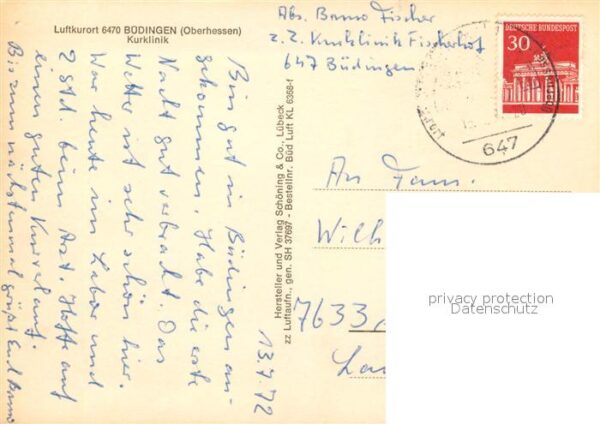 Luftkurort 6470 BÜDINGEN (Oberhessen)
Kurklinik
Abs. Bruno Fischer
z. Z. Kurklinik Fischerhof
647 Büdingen
DEUTSCHE BUNDESPOST
30
647
13.4.72
Bin gut in Büdingen an-
gekommen. Habe die erste
Nacht gut verbracht. Das
Wetter ist sehr schön hier.
War heute im Labor und
2 Std. beim Arzt. Hoffe auf
einen guten Kurverlauf.
Bis zum nächstenmal grüßt Euch Bruno
Hersteller und Verlag Schöning & Co., Lübeck
zz Luftaufn., gen. SH 37697 - Bestellnr. Büd Luft KL 6368-f
An Fam.
Wilh
7633
La
privacy protection
Datenschutz